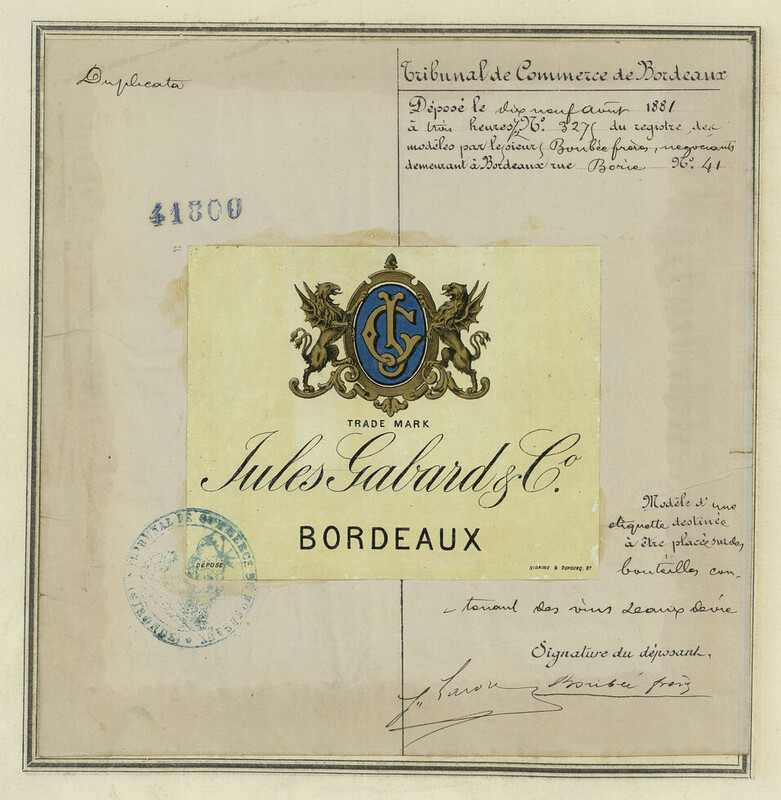 Duplicata
Tribunal de Commerce de Bordeaux
Déposé le dix neuf août 1881
à trois heures, N° 3275 du registre des
modèles par les sieurs Boubée frères, négociants
demeurant à Bordeaux rue Borie N° 41
41800
JG
TRADE MARK
Jules Gabard & Co.
BORDEAUX
DÉPOSÉ
TRIBUNAL DE COMMERCE DE BORDEAUX
Modèle d'une
etiquette destinée
à être placée sur des
bouteilles con-
tenant des vins & eaux de vie
Signature du déposant,
Boubée frères